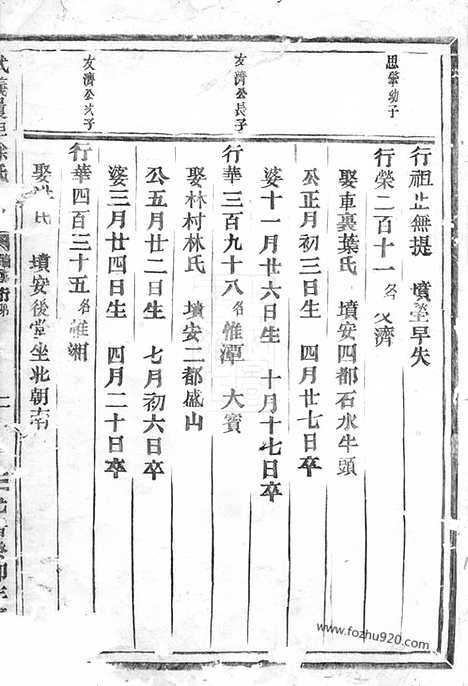 思肇幼子
友濟公長子
友濟公次子
行祖止無提 墳塋早失
行榮二百十一名友濟
娶車裏葉氏 墳安四都石水牛頭
公正月初三日生 四月廿七日卒
婆十一月廿六日生 十月十七日卒
行華三百九十八名惟潭 大賓
娶林村林氏 墳安二都盛山
公五月廿二日生 七月初六日卒
婆三月廿四日生 四月二十日卒
行華四百三十五名惟湘
娶 氏 墳安後堂坐北朝南
www.fozhu920.com